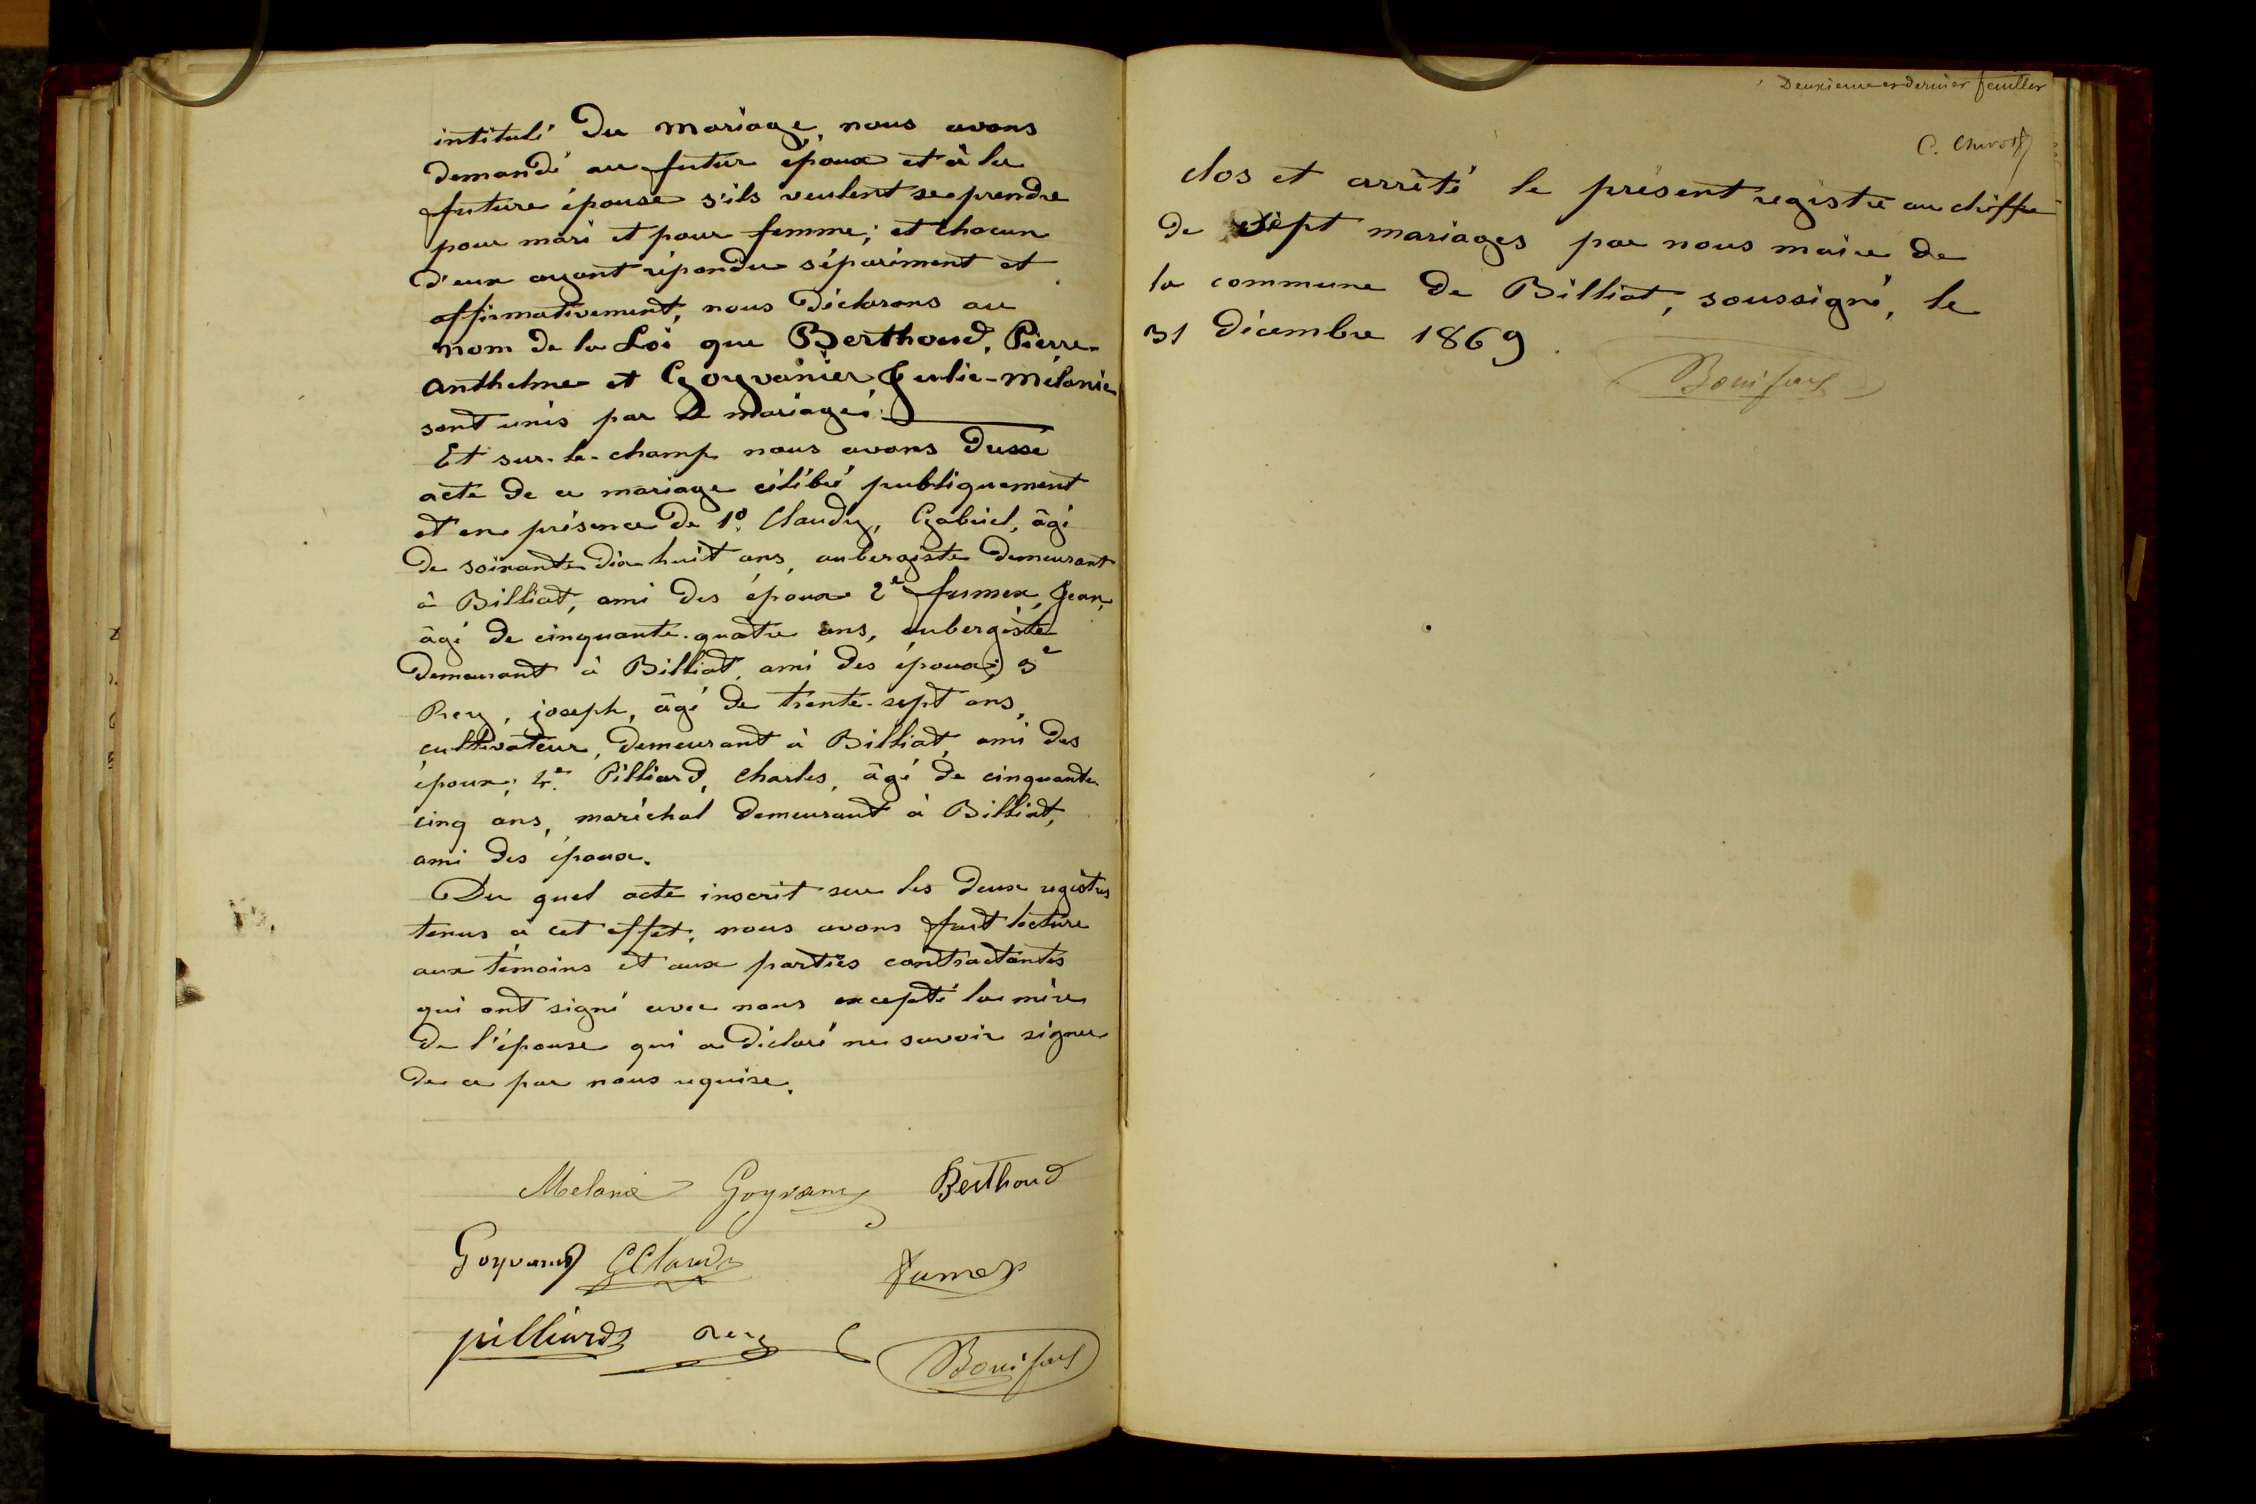 intitulé du mariage, nous avons
demandé au futur époux et à la
future épouse s'ils veulent se prendre
pour mari et pour femme; et chacun
d'eux ayant répondu séparément et
affirmativement, nous déclarons au
nom de la Loi que Berthoud, Pierre-
Anthelme et Goyvanier Julie-Mélanie
sont unis par le mariage.
Et sur-le-champ nous avons dressé
acte de ce mariage célébré publiquement
et en présence de 1º Claudy, Gabriel, âgé
de soixante dix huit ans, aubergiste demeurant
à Billiat, ami des époux 2e fumex, Jean,
âgé de cinquante-quatre ans, aubergiste
demeurant à Billiat, ami des époux; 3e
Rey, joseph, âgé de trente-sept ans,
cultivateur, demeurant à Billiat, ami des
époux; 4e. Pilliard, Charles, âgé de cinquante
cinq ans, maréchal demeurant à Billiat,
ami des époux.
Du quel acte inscrit sur les deux registres
tenus à cet effet, nous avons fait lecture
aux témoins et aux parties contractantes
qui ont signé avec nous excepté la mère
de l'épouse qui a déclaré ne savoir signer
de ce par nous requise.
Melanie Berthoud
pilliard Rey
Deuxieme et dernier feuillet
clos et arrêté le présent registre au chiffre
de sept mariages par nous maire de
la commune de Billiat, soussigné, le
31 décembre 1869.